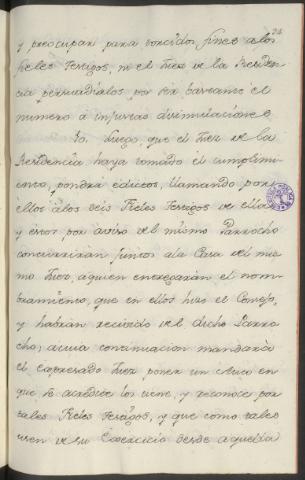 24
y preocupar para torcidos fines a los
fieles Testigos, ni el Juez de la Residen
cia persuadirlos por ser bastante el
numero a injustas disimulaciones
10. Luego que el Juez de la
Residencia haya tomado el cumplimi
ento, pondrá edictos, llamando por
ellos a los seis Fieles Testigos de ella,
y estos por aviso del mismo Parrocho
concurriran juntos a la Casa del mis
mo Juez, a quien entregarán el nom
bramiento, que en ellos hizo el Consejo,
y habrán recivido del dicho Parro
cho, a cuia continuacion mandará
el expresado Juez poner un Auto en
que se acredite los tiene, y reconoce por
tales Fieles Testigos, y que como tales
usen de su Exercicio desde aquella